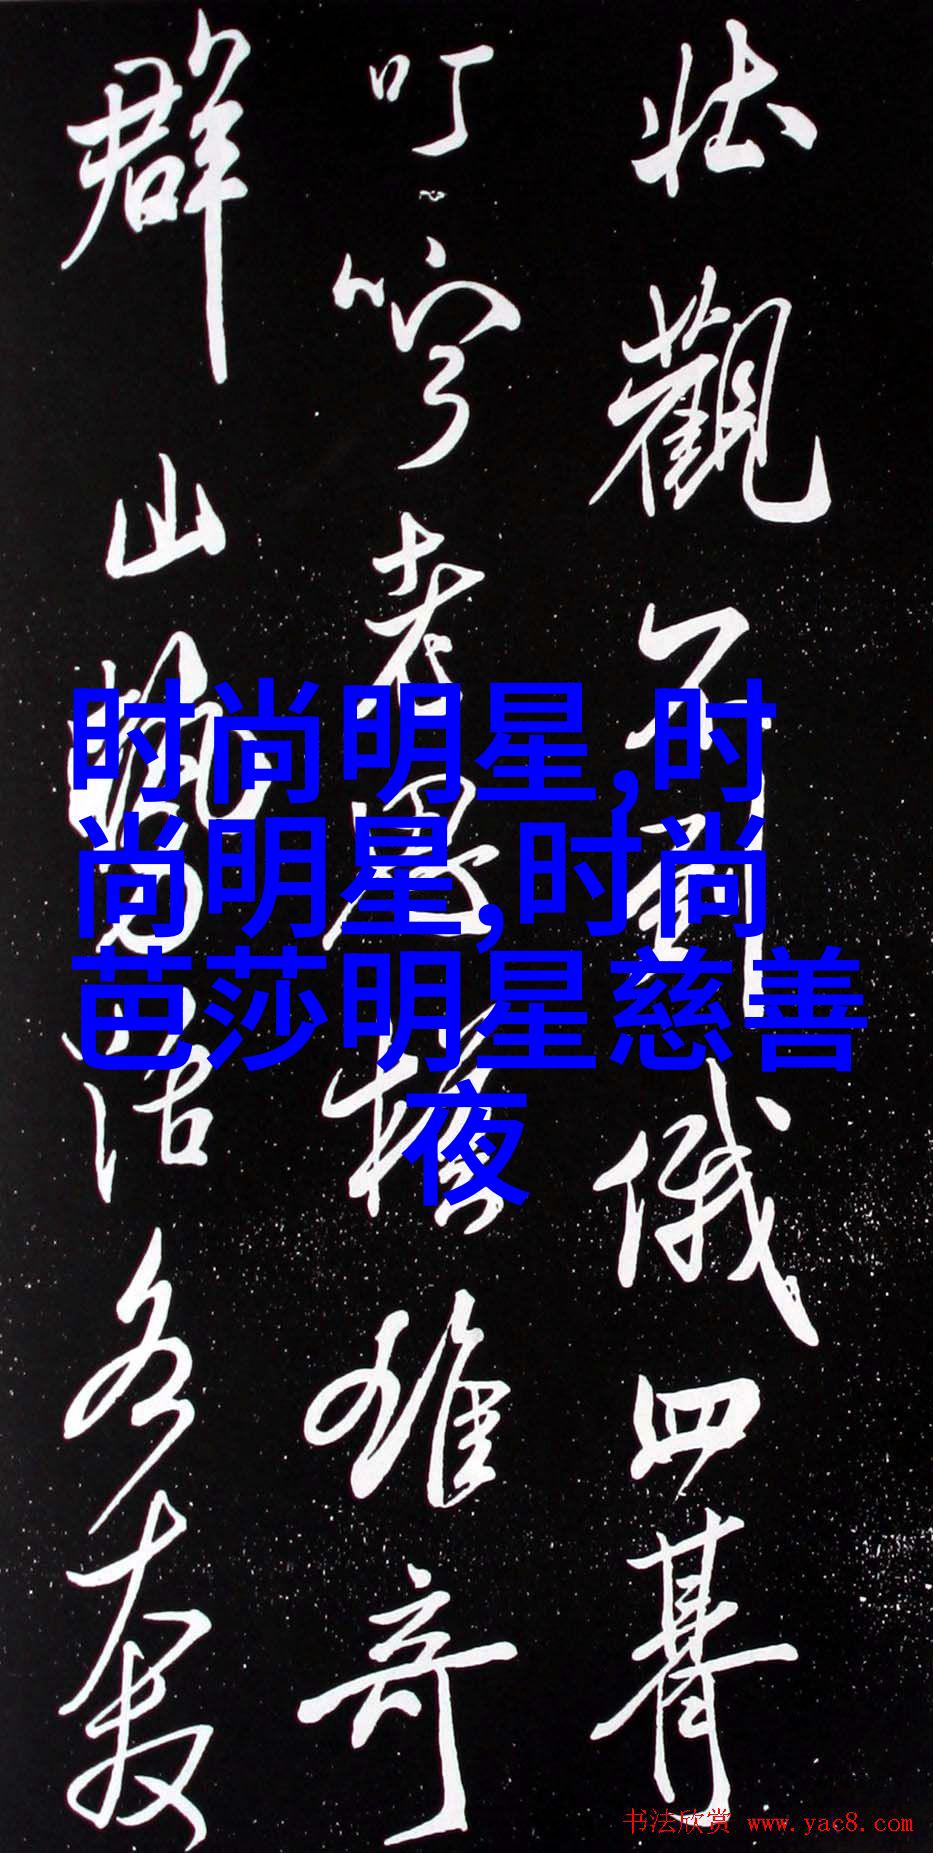 壯觀不俄四
叮嚀老雄奇
群山活
时尚明星,时
尚明星,时尚
芭莎明星慈善
夜
书法欣赏 www.yac8.com